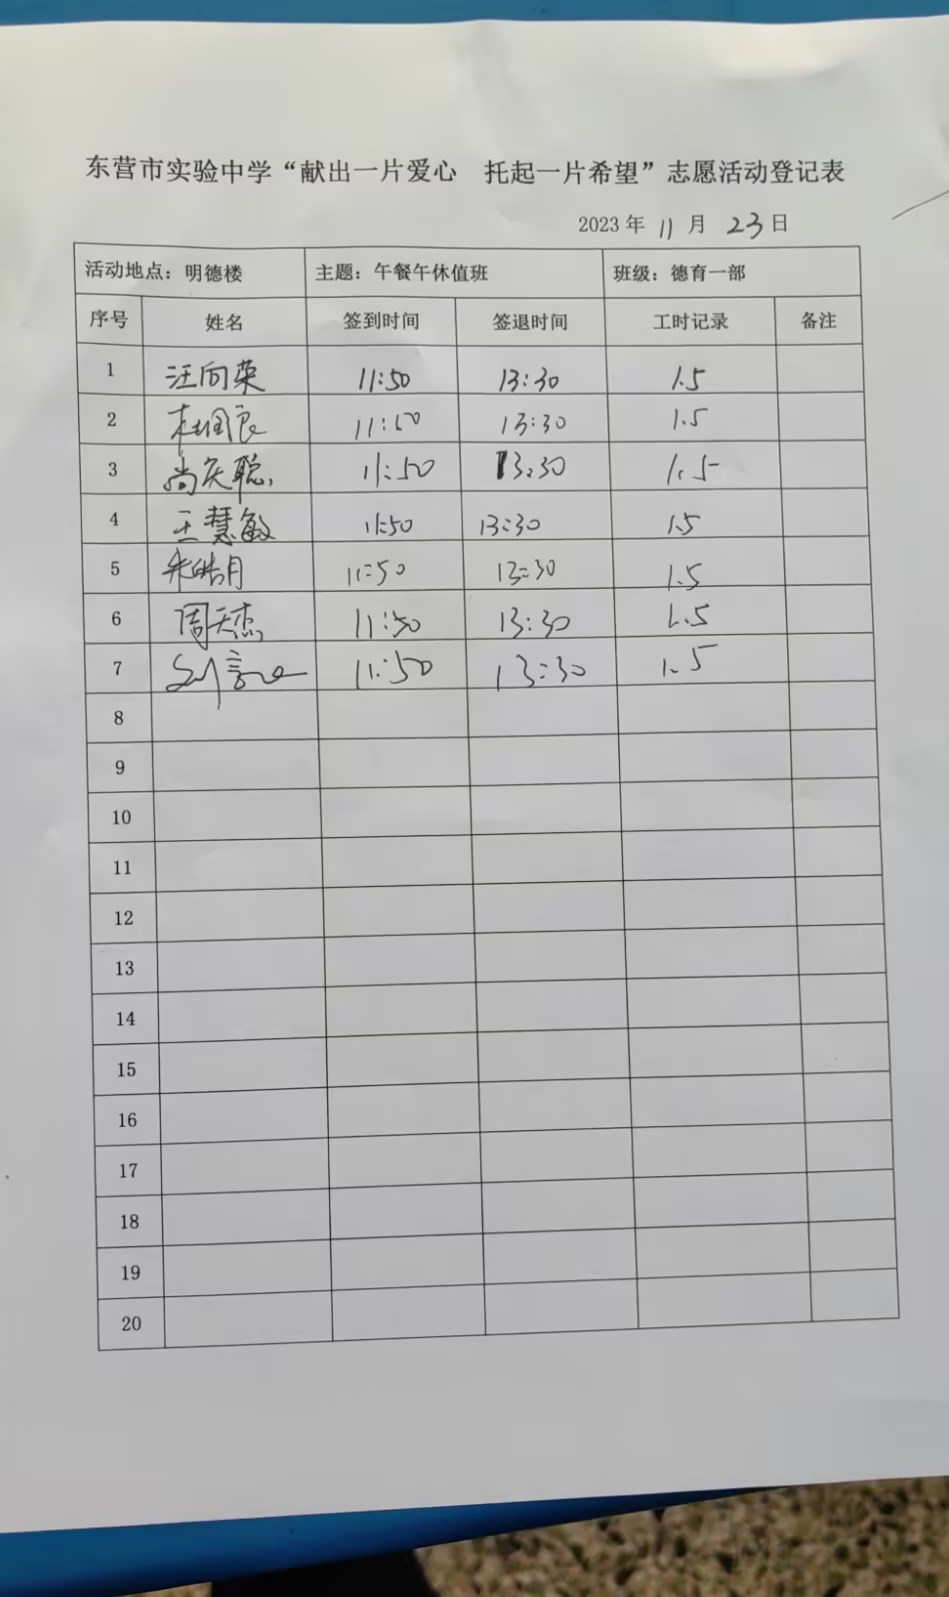 东营市实验中学“献出一片爱心 托起一片希望”志愿活动登记表
2023 年 11 月 23 日
活动地点：明德楼 主题：午餐午休值班 班级：德育一部
序号 姓名 签到时间 签退时间 工时记录 备注
1 汪向荣 11:50 13:30 1.5
2 11:50 13:30 1.5
3 尚庆聪 11:50 13:30 1.5
4 王慧敏 11:50 13:30 1.5
5 朱皓月 11:50 13:30 1.5
6 周天杰 11:50 13:30 1.5
7 11:50 13:30 1.5
8
9
10
11
12
13
14
15
16
17
18
19
20